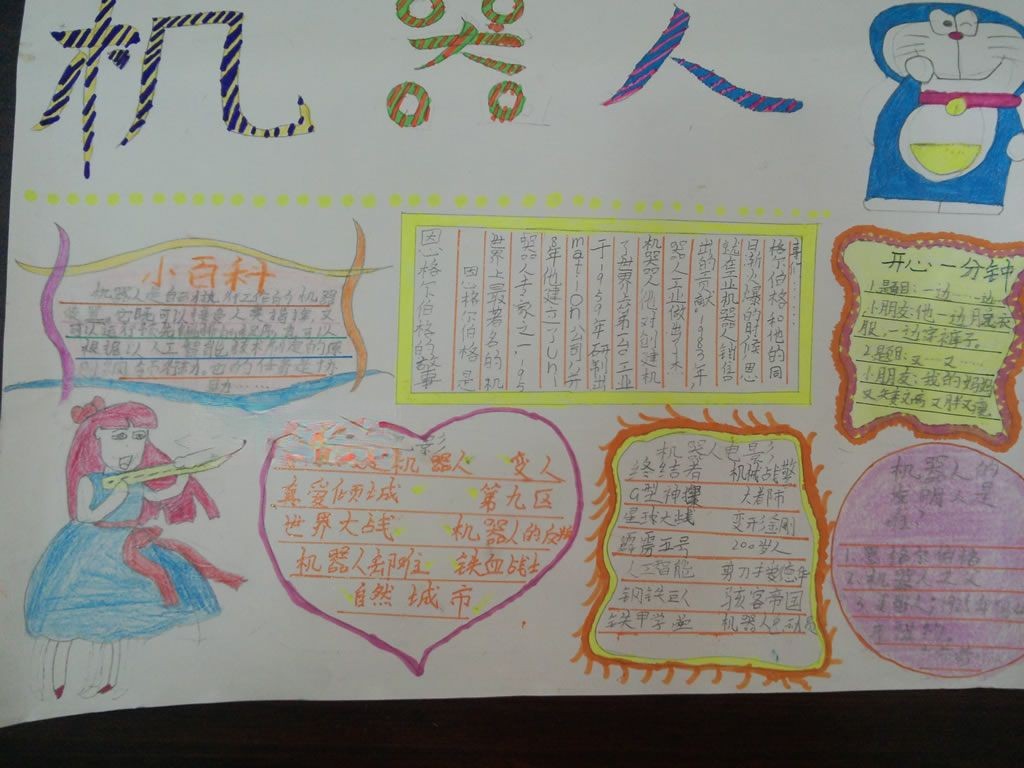 机器人
小百科
机器人是自动执行工作的机器
装置。它既可以接受人类指挥,又
可以运行预先编排的程序,也可以
根据以人工智能技术制定的原
则纲领行动。它的任务是协
助……
因格尔伯格的故事
因格尔伯格是
世界上最著名的机
器人专家之一,195
8年他建立了Uni
mation公司,并
于1959年研制出
了世界上第一台工业
机器人,他对创建机
器人工业做出了杰
出的贡献。1983年,
就在工业机器人销售
日渐火爆的时候,恩
格尔伯格和他的同
事们……
开心一分钟
1.题目:一边……一边
小朋友:他一边脱衣
服,一边穿裤子。
2.题目:又……又……
小朋友:我的妈妈
又矮又高又胖又瘦。
机器人 变人
真爱倾城 第九区
世界大战 机器人的反叛
机器人部队 铁血战士
自然城市
机器人电影
终结者 机械战警
G型神探 大都市
星球大战 变形金刚
霹雳五号 200岁人
人工智能 剪刀手爱德华
钢铁巨人 骇客帝国
铁甲学
机器人的
发明人是
谁?